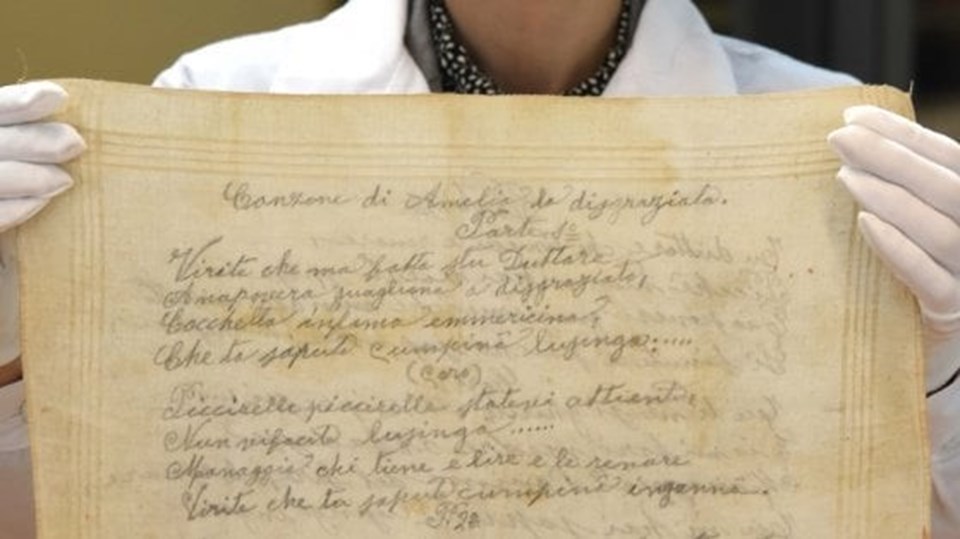 Canzone di Amelia la disgraziata.
Parte 1a
Virite che ma fatto stu Duttore
A na povera quagliona a disgraziata,
Cocchella infama
Che ta saputo cumpinà lusinga.....
(Coro)
Piccirelle piccirelle stateve attiente,
Nun ve facite lusingà......
Mannaggia chi tiene e lire e le renare
Virite che ta saputo cumpinà inganna.
P. 2a